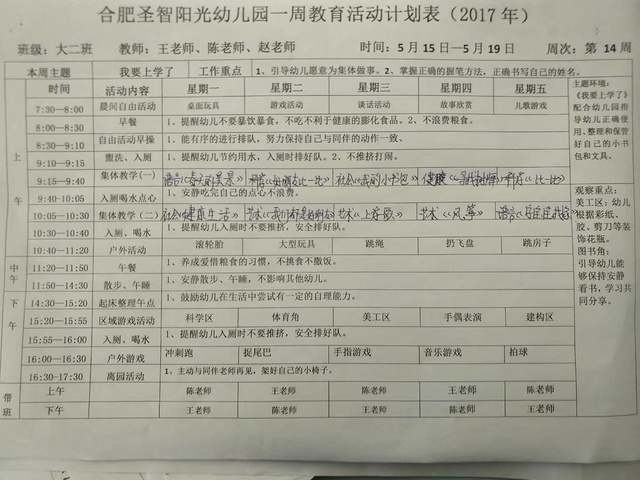 合肥圣智阳光幼儿园一周教育活动计划表（2017 年）
班级：大二班 教师：王老师、陈老师、赵老师 时间：5 月 15 日—5 月 19 日 周次：第 14 周
本周主题 我要上学了 工作重点 1、引导幼儿愿意为集体做事。2、掌握正确的握笔方法，正确书写自己的姓名。
时间 活动内容 星期一 星期二 星期三 星期四 星期五
7:30—8:00 晨间自由活动 桌面玩具 游戏活动 谈话活动 故事欣赏 儿歌游戏
8:00—8:30 早餐 1、提醒幼儿不要暴饮暴食，不吃不利于健康的膨化食品。2、不浪费粮食。
8:30—9:10 自由活动早操 1、能有序的进行排队，努力保持自己与同伴的动作一致、
9:10—9:15 盥洗、入厕 1、提醒幼儿节约用水，入厕时排好队。2、不推挤打闹。
9:15—9:40 集体教学（一） 社会《我的小书包》 健康 《比一比》
9:40—10:05 入厕喝水点心 1、安静吃完自己的点心不浪费。
10:05—10:30 集体教学（二） 社会《健康生活》 艺术 艺术《上学歌》 艺术《风筝》 语言
10:30—10:40 入厕、喝水 1、提醒幼儿入厕时不要推挤，安全排好队。
10:40—11:20 户外活动 滚轮胎 大型玩具 跳绳 扔飞盘 跳房子
11:20—11:50 午餐 1、养成爱惜粮食的习惯，不挑食不撒饭。
11:50—14:30 散步、午睡 1、安静散步、午睡，不影响其他幼儿。
14:30—15:20 起床整理午点 1、鼓励幼儿在生活中尝试有一定的自理能力。
15:20—15:55 区域游戏活动 科学区 体育角 美工区 手偶表演 建构区
15:55—16:00 入厕、喝水 1、提醒幼儿入厕时不要推挤，安全排好队。
16:00—16:30 户外游戏 冲刺跑 捉尾巴 手指游戏 音乐游戏 拍球
16:30-17:30 离园活动 1、主动与同伴老师再见，架好自己的小椅子。
上午
中午
下午
带班 上午 陈老师 王老师 陈老师 王老师 陈老师
下午 王老师 陈老师 王老师 陈老师 王老师
主题环境：
《我要上学了》
配合幼儿园指
导幼儿正确使
用、整理和保管
好自己的小书
包和文具。
观察重点：
美工区：幼儿
根据彩纸、
胶、剪刀等装
饰花瓶。
图书角：
引导幼儿能
够保持安静
看书，学习共
同分享。